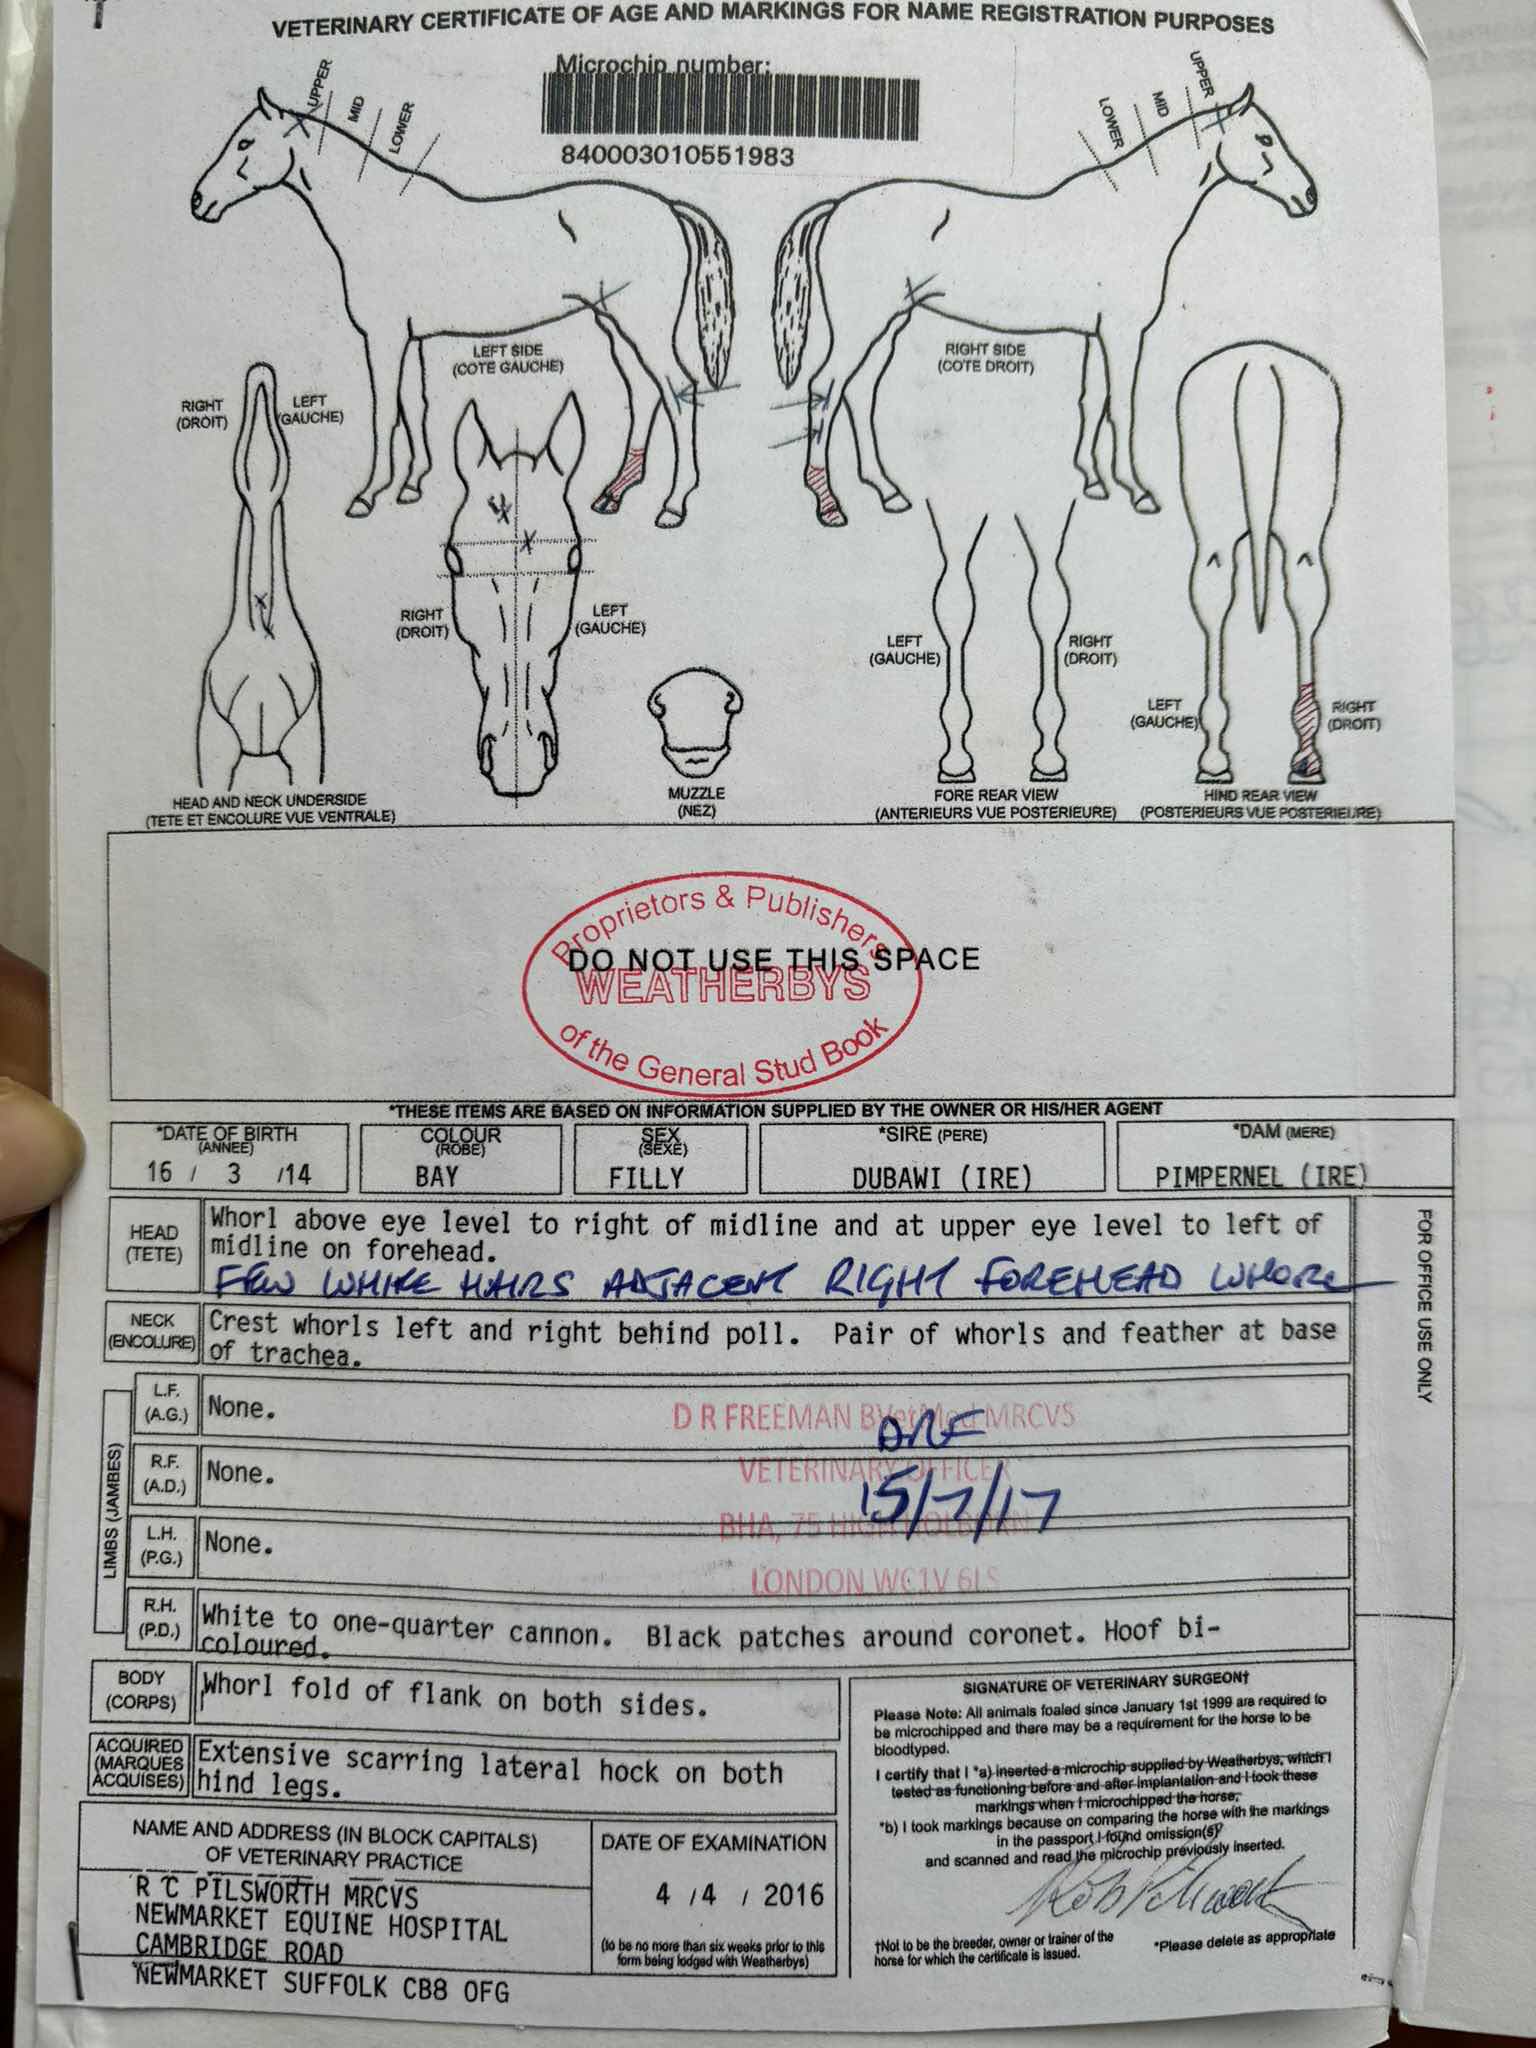 VETERINARY CERTIFICATE OF AGE AND MARKINGS FOR NAME REGISTRATION PURPOSES
Microchip number:
840003010551983
UPPER
MID
LOWER
LOWER
MID
UPPER
LEFT SIDE
(COTE GAUCHE)
RIGHT SIDE
(COTE DROIT)
RIGHT
(DROIT)
LEFT
(GAUCHE)
RIGHT
(DROIT)
LEFT
(GAUCHE)
LEFT
(GAUCHE)
RIGHT
(DROIT)
LEFT
(GAUCHE)
RIGHT
(DROIT)
HEAD AND NECK UNDERSIDE
(TETE ET ENCOLURE VUE VENTRALE)
MUZZLE
(NEZ)
FORE REAR VIEW
(ANTERIEURS VUE POSTERIEURE)
HIND REAR VIEW
(POSTERIEURS VUE POSTERIEURE)
Proprietors & Publishers
DO NOT USE THIS SPACE
WEATHERBYS
of the General Stud Book
*THESE ITEMS ARE BASED ON INFORMATION SUPPLIED BY THE OWNER OR HIS/HER AGENT
*DATE OF BIRTH
(ANNEE)
16 / 3 /14
COLOUR
(ROBE)
BAY
SEX
(SEXE)
FILLY
*SIRE (PERE)
DUBAWI (IRE)
*DAM (MERE)
PIMPERNEL (IRE)
HEAD
(TETE)
Whorl above eye level to right of midline and at upper eye level to left of
midline on forehead.
FEW WHITE HAIRS ADJACENT RIGHT FOREHEAD WHORL
FOR OFFICE USE ONLY
NECK
(ENCOLURE)
Crest whorls left and right behind poll. Pair of whorls and feather at base
of trachea.
LIMBS (JAMBES)
L.F.
(A.G.)
None.
D R FREEMAN BVetMed MRCVS
DRF
R.F.
(A.D.)
None.
VETERINARY OFFICER
15/7/17
BHA, 75 HIGH HOLBORN
L.H.
(P.G.)
None.
LONDON WC1V 6LS
R.H.
(P.D.)
White to one-quarter cannon. Black patches around coronet. Hoof bi-
coloured.
BODY
(CORPS)
Whorl fold of flank on both sides.
ACQUIRED
(MARQUES
ACQUISES)
Extensive scarring lateral hock on both
hind legs.
NAME AND ADDRESS (IN BLOCK CAPITALS)
OF VETERINARY PRACTICE
R C PILSWORTH MRCVS
NEWMARKET EQUINE HOSPITAL
CAMBRIDGE ROAD
NEWMARKET SUFFOLK CB8 0FG
DATE OF EXAMINATION
4 / 4 / 2016
(to be no more than six weeks prior to this
form being lodged with Weatherbys)
SIGNATURE OF VETERINARY SURGEON†
Please Note: All animals foaled since January 1st 1999 are required to
be microchipped and there may be a requirement for the horse to be
bloodtyped.
I certify that I *a) inserted a microchip supplied by Weatherbys, which I
tested as functioning before and after implantation and I took these
markings when I microchipped the horse,
*b) I took markings because on comparing the horse with the markings
in the passport I found omission(s)
and scanned and read the microchip previously inserted.
†Not to be the breeder, owner or trainer of the
horse for which the certificate is issued.
*Please delete as appropriate